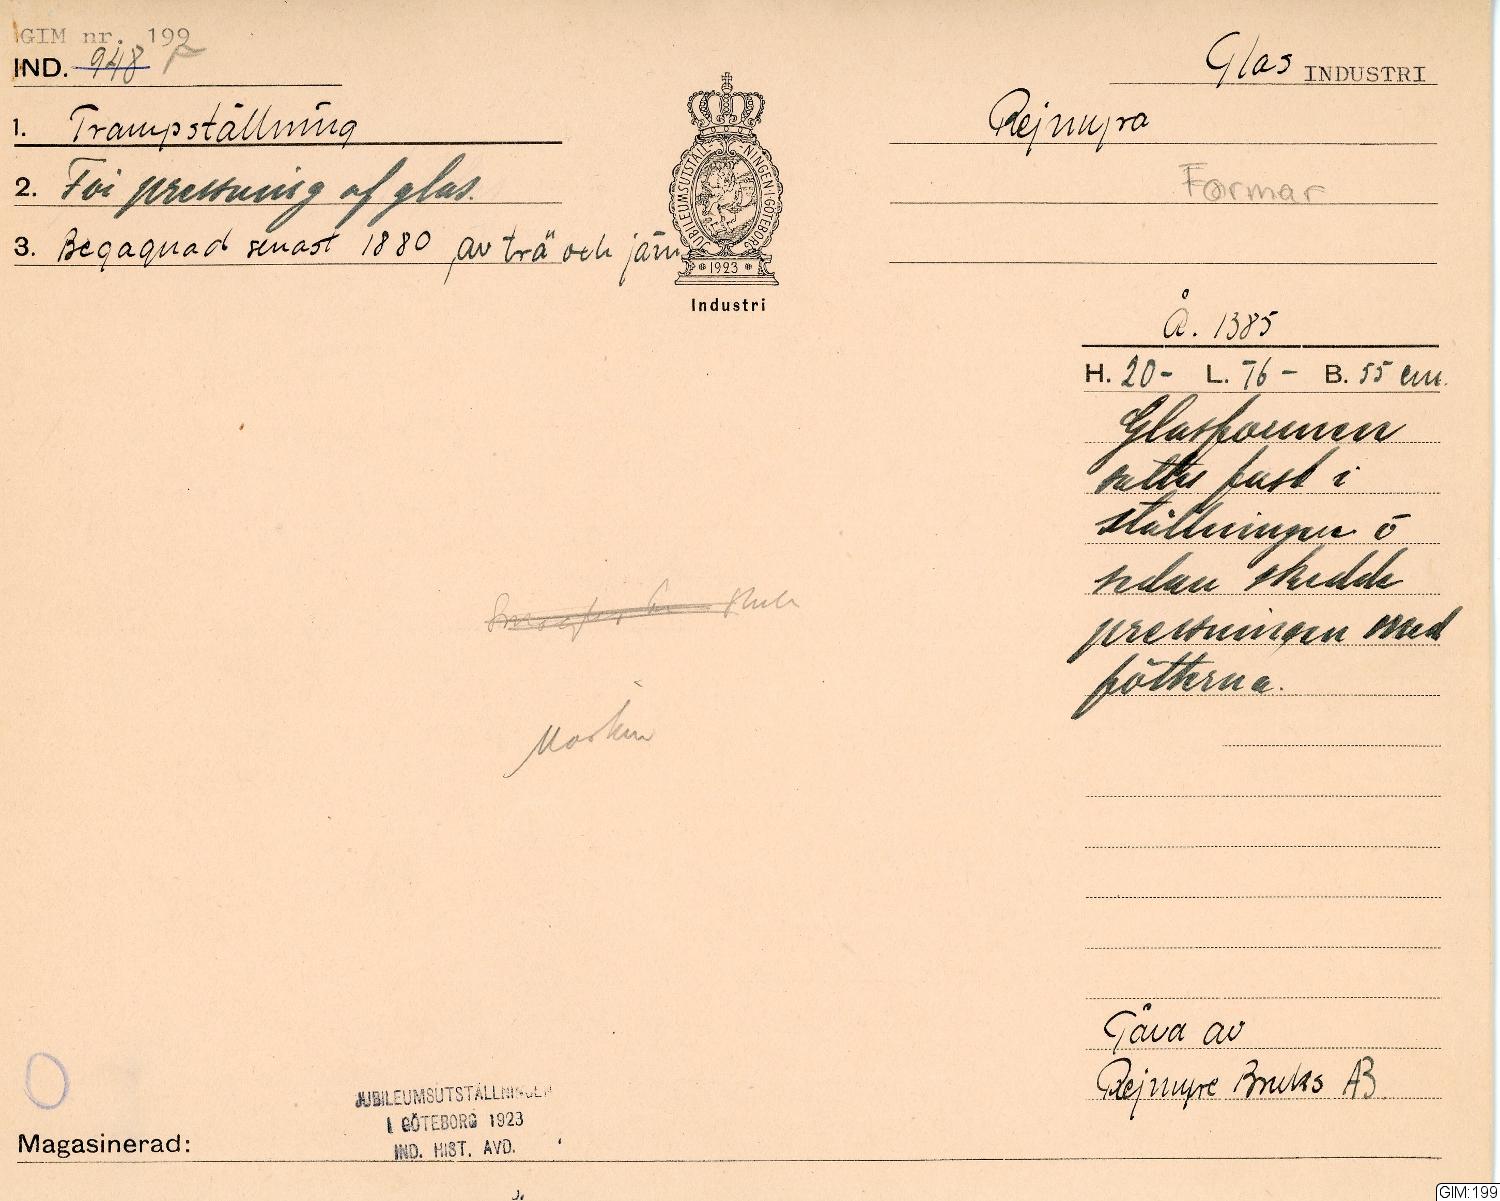 GIM nr. 199
IND. 948
Glas INDUSTRI
1. Trampställning
Rejmyra
2. För pressning af glas.
Formar
3. Begagnad senast 1880 av trä och järn
JUBILEUMSUTSTÄLLNINGEN I GÖTEBORG
1923
Industri
Å. 1385
H. 20- L. 76- B. 55 cm.
Glasformen
sattes fast i
ställningen o
sedan skedde
pressningen med
fötterna.
Maskin
Gåva av
Rejmyre Bruks AB.
JUBILEUMSUTSTÄLLNINGEN
I GÖTEBORG 1923
IND. HIST. AVD.
Magasinerad:
GIM:199